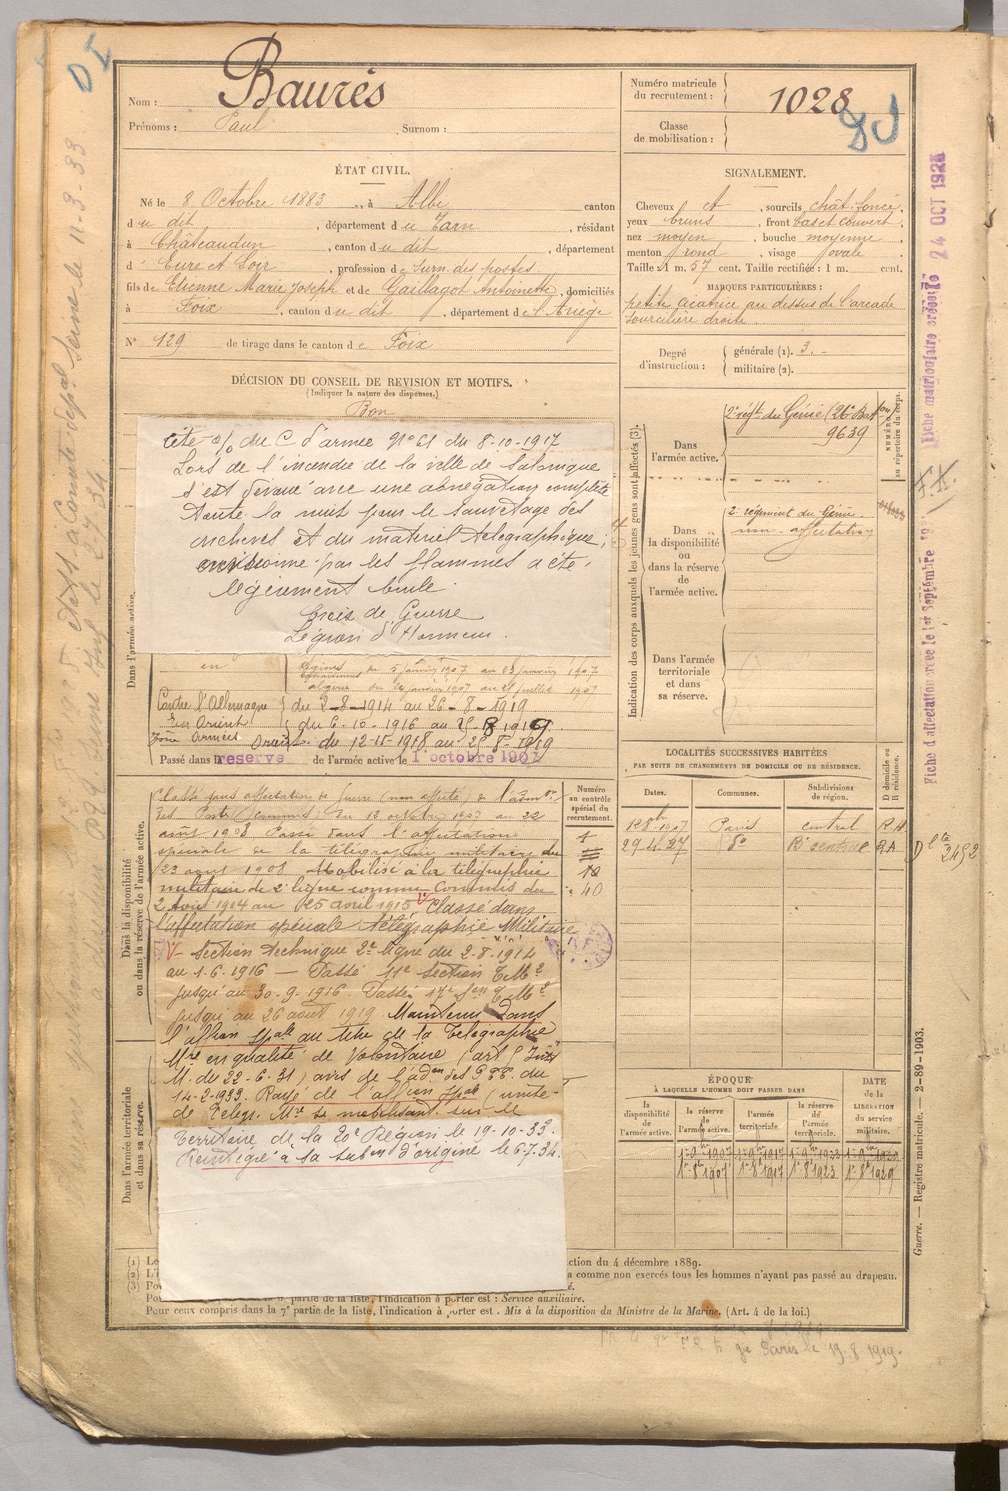 Nom : Baurès
Prénoms : Paul , Surnom :
Numéro matricule du recrutement : 1028
Classe de mobilisation :
ÉTAT CIVIL.
Né le 8 Octobre 1883, à Albi canton
du dit, département du Tarn, résidant
à Châteaudun, canton du dit, département
d' Eure et Loir, profession de surn. des postes
fils de Etienne Marie Joseph et de Gaillagot Antoinette, domiciliés
à Foix, canton du dit, département de l'Ariège
N° 129 de tirage dans le canton de Foix
DÉCISION DU CONSEIL DE REVISION ET MOTIFS.
(Indiquer la nature des dispenses.)
Bon
Cité à l'o/ du C. d'armée N° 61 du 8-10-1917
Lors de l'incendie de la ville de Salonique
s'est dévoué avec une abnégation complète
toute la nuit pour le sauvetage des
archives et du matériel télégraphique;
environné par les flammes a été
légèrement brulé
Croix de Guerre
Légion d'Honneur.
Dans l'armée active.
en
du 5 janvier 1907 au 23 janvier 1907
algérie du 24 janvier 1907 au 28 juillet 1907
Contre l'Allemagne du 2-8-1914 au 26-8-1919
En Orient du 6-10-1916 au 25-8-1919
Zone Armées Orient du 12-11-1918 au 25-8-1919
Passé dans la reserve de l'armée active le 1 octobre 1907
Dans la disponibilité ou dans la réserve de l'armée active.
Classé sans affectation de guerre (non affecté) de l'adm on
des Postes (commis) du 12 octobre 1907 au 22
août 1908 Passé dans l'affectation
spéciale de la télégraphie militaire du
23 août 1908 Mobilisé à la télégraphie
militaire de 2e ligne comme Commis du
2 Août 1914 au 25 avril 1915 Classé dans
l'affectation spéciale télégraphie Militaire
V- Section technique 2e ligne du 2-8-1914
au 1-6-1916 — Passé 11e Section T. Mre
jusqu'au 30-9-1916. Passé 17e Son T. Mre
jusqu'au 26 août 1919 Maintenu dans
l'affon spale au titre de la Télégraphie
Mre en qualité de Volontaire (art 5 Inst
M. du 22-6-31) avis de l'adon des PTT. du
14-2-1933. Rayé de l'affon spale (unité
de Télégr. Mre se mobilisant sur le
Territoire de la 20e Région le 19-10-33.
Réintégré à la subon d'origine le 6-7-34.
Dans l'armée territoriale et dans sa réserve.
Numéro au contrôle spécial du recrutement.
40
SIGNALEMENT.
Cheveux et, sourcils chât. foncé,
yeux bruns, front bas et couvert,
nez moyen, bouche moyenne,
menton rond, visage ovale.
Taille : 1 m. 57 cent. Taille rectifiée : 1 m. cent.
MARQUES PARTICULIÈRES :
petite cicatrice au dessus de l'arcade
sourcilière droite.
Degré d'instruction : générale (1). 3.
militaire (2).
Indication des corps auxquels les jeunes gens sont affectés (3).
Dans l'armée active.
2e régt du Génie (26e Bat on
9639
NUMÉRO au répertoire du corps.
Dans la disponibilité ou dans la réserve de l'armée active.
2e régiment du Génie
non-affectation
Dans l'armée territoriale et dans sa réserve.
LOCALITÉS SUCCESSIVES HABITÉES
PAR SUITE DE CHANGEMENTS DE DOMICILE OU DE RÉSIDENCE.
Dates. Communes. Subdivisions de région. D domicile ou R résidence.
1 28bre 1907 Paris central R
29-4-27 8e Bau central RA
ÉPOQUE
À LAQUELLE L'HOMME DOIT PASSER DANS
la disponibilité de l'armée active. la réserve de l'armée active. l'armée territoriale. la réserve de l'armée territoriale.
DATE de la LIBÉRATION du service militaire.
1er 8bre 1907 1er 8bre 1917 1er 8bre 1923 1er 8bre 1929
(1) Le
ction du 4 décembre 1889.
(2) L'i
a comme non exercés tous les hommes n'ayant pas passé au drapeau.
(3) Pou
partie de la liste, l'indication à porter est : Service auxiliaire.
Pour ceux compris dans la 7e partie de la liste, l'indication à porter est : Mis à la disposition du Ministre de la Marine. (Art. 4 de la loi.)
Paris le 19-8-1919.
Guerre. — Registre matricule. — 2-89-1903.
Fiche matriculaire créée le 24 OCT 1928
Fiche d'affectation créée le 1er Septembre 19
2452
D I